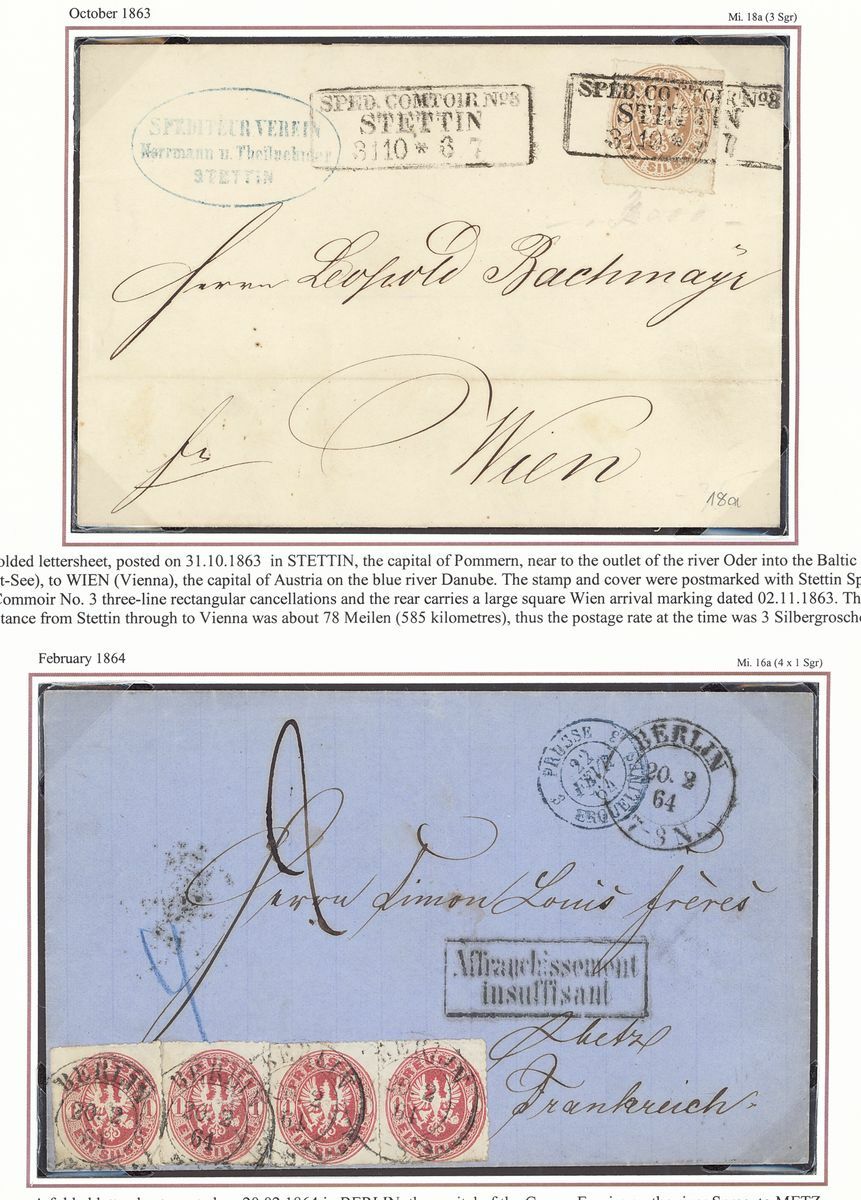 October 1863
Mi. 18a (3 Sgr)
SPEDITEUR VEREIN
Herrmann u. Theilnehmer
STETTIN
SPED. COMTOIR No3
STETTIN
3110 * 6 7
SPED. COMTOIR No3
STETTIN
3110 * 7
Herrn Leopold Bachmayr
Wien
18a
olded lettersheet, posted on 31.10.1863 in STETTIN, the capital of Pommern, near to the outlet of the river Oder into the Baltic
t-See), to WIEN (Vienna), the capital of Austria on the blue river Danube. The stamp and cover were postmarked with Stettin Sp
Commoir No. 3 three-line rectangular cancellations and the rear carries a large square Wien arrival marking dated 02.11.1863. Th
tance from Stettin through to Vienna was about 78 Meilen (585 kilometres), thus the postage rate at the time was 3 Silbergrosche
February 1864
Mi. 16a (4 x 1 Sgr)
3 PRUSSE 3
22
FEVR
64
ERQUELINES
BERLIN
20. 2
64
7-8 N.
Herrn Simon Louis frères
Affranchissement
insuffisant
Metz
Frankreich
BERLIN
20. 2
BERLIN
20. 2
64
PREUSSEN
1 1
2
64
PREUSSEN
1 1
2
64
EIN SILB.GR.